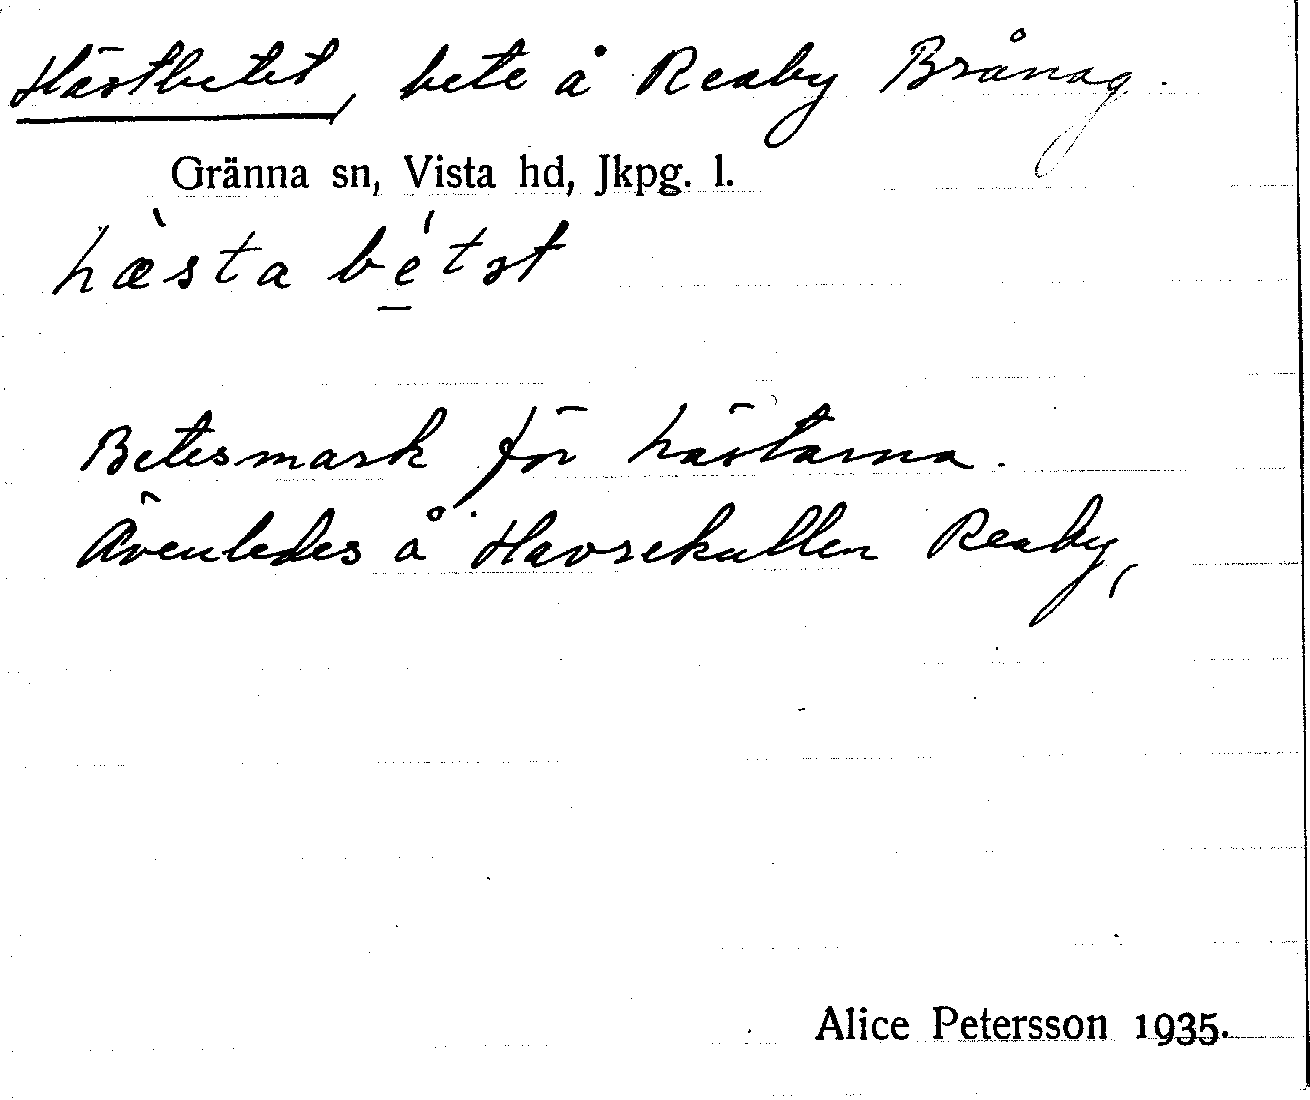 Hästbetet, bete å Reaby Brånag.
Gränna sn, Vista hd, Jkpg. l.
hæ̀sta bé̱tət
Betesmark för hästarna.
Ävenledes å Havrekullen Reaby,
Alice Petersson 1935.